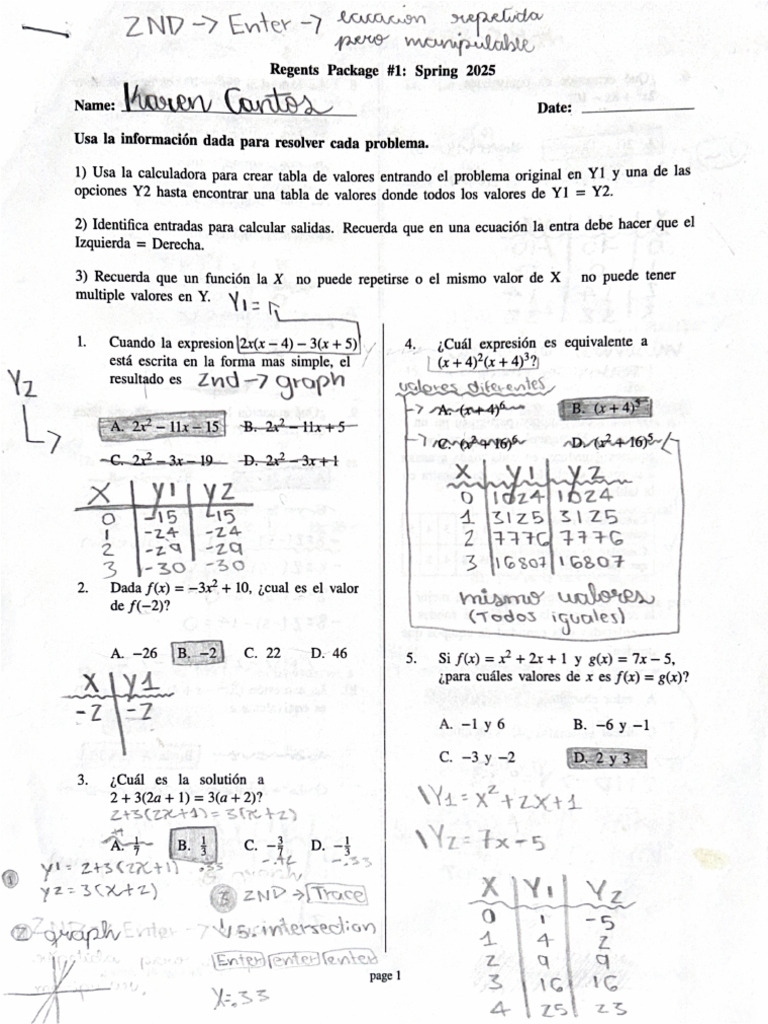 2ND → Enter → ecuación repetida
pero manipulable
Regents Package #1: Spring 2025
Name: Karen Cantos Date:
Usa la información dada para resolver cada problema.
1) Usa la calculadora para crear tabla de valores entrando el problema original en Y1 y una de las
opciones Y2 hasta encontrar una tabla de valores donde todos los valores de Y1 = Y2.
2) Identifica entradas para calcular salidas. Recuerda que en una ecuación la entra debe hacer que el
Izquierda = Derecha.
3) Recuerda que un función la X no puede repetirse o el mismo valor de X no puede tener
multiple valores en Y.
Y1 =
1. Cuando la expresion 2x(x − 4) − 3(x + 5)
está escrita en la forma mas simple, el
resultado es 2nd → graph
Y2
A. 2x² − 11x − 15 B. 2x² − 11x + 5
C. 2x² − 3x − 19 D. 2x² − 3x + 1
X Y1 Y2
0 -15 -15
1 -24 -24
2 -29 -29
3 -30 -30
2. Dada f(x) = −3x² + 10, ¿cual es el valor
de f(−2)?
A. −26 B. −2 C. 22 D. 46
X Y1
-2 -2
3. ¿Cuál es la solutión a
2 + 3(2a + 1) = 3(a + 2)?
2+3(2x+1)=3(x+2)
A. 1/7 B. 1/3 C. −3/7 D. −1/3
.33 -.42 -.33
1 y1 = 2+3(2x+1)
y2 = 3(x+2)
2 graph
3 2ND → Trace
5. intersection
Enter enter enter
X=.33
4. ¿Cuál expresión es equivalente a
(x + 4)²(x + 4)³?
valores diferentes
→ A. (x+4)⁶ B. (x + 4)⁵
→ C. (x²+16)⁶ D. (x²+16)⁵
X Y1 Y2
0 1024 1024
1 3125 3125
2 7776 7776
3 16807 16807
mismo valores
(Todos iguales)
5. Si f(x) = x² + 2x + 1 y g(x) = 7x − 5,
¿para cuáles valores de x es f(x) = g(x)?
A. −1 y 6 B. −6 y −1
C. −3 y −2 D. 2 y 3
\Y1 = x² + 2x + 1
\Y2 = 7x - 5
X Y1 Y2
0 1 -5
1 4 2
2 9 9
3 16 16
4 25 23
page 1